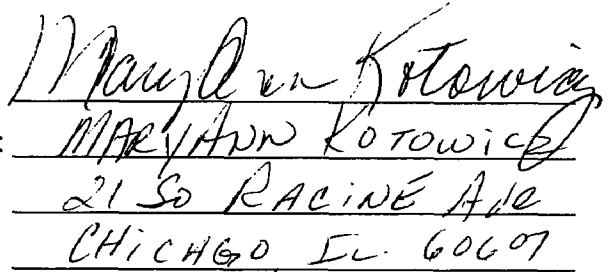 MaryAnn Kotowicz
: MARYANN KOTOWICZ
21 SO RACINE AVE
CHICAGO IL. 60607